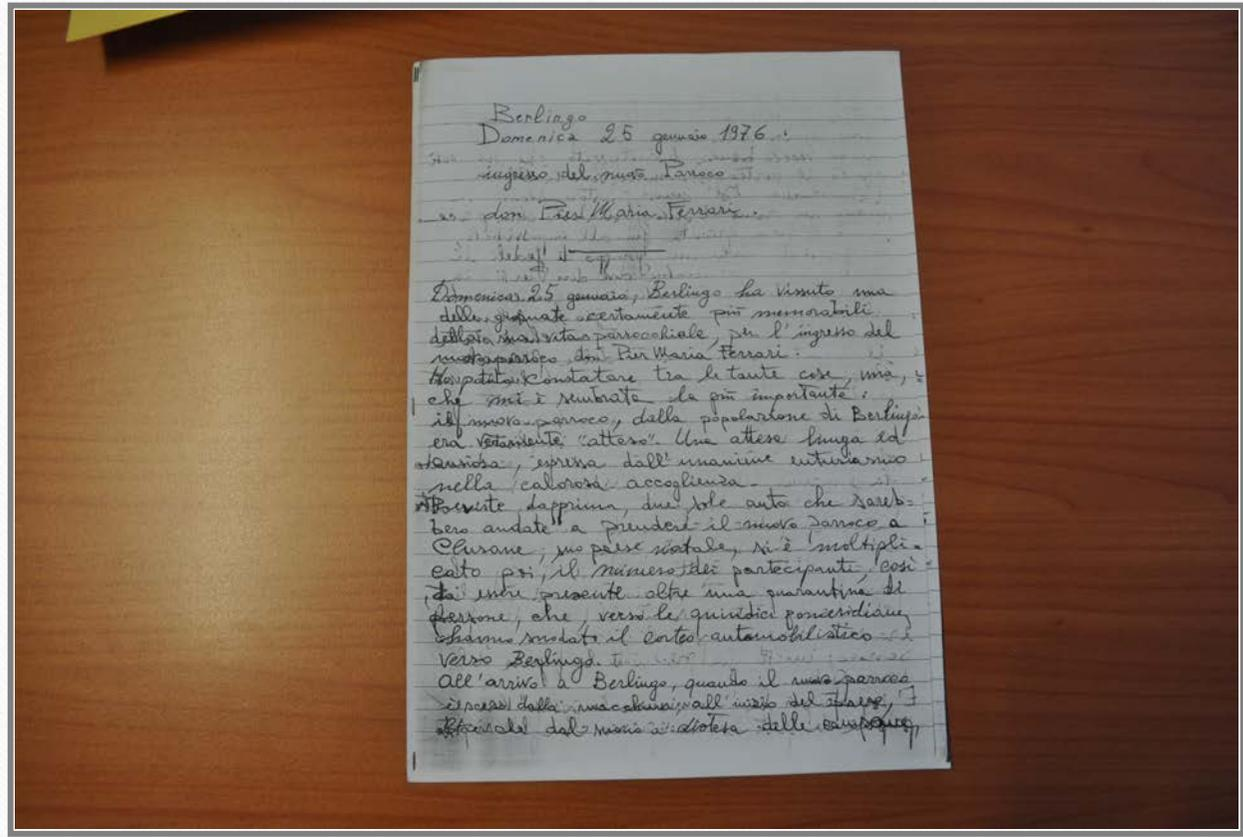 Berlingo
Domenica 25 gennaio 1976.
ingresso del nuovo Parroco
don Pier Maria Ferrari.
Domenica 25 gennaio, Berlingo ha vissuto una
delle giornate certamente più memorabili
della sua vita parrocchiale, per l'ingresso del
nuovo parroco don Pier Maria Ferrari.
Ho potuto constatare tra le tante cose, una,
che mi è sembrata la più importante:
il nuovo parroco, dalla popolazione di Berlingo
era veramente "atteso". Una attesa lunga ed
ansiosa, espressa dall'unanime entusiasmo
nella calorosa accoglienza.
dapprima, due sole auto che sareb=
bero andate a prendere il nuovo Parroco a
Clusane, suo paese natale, si è moltipli=
cato poi, il numero dei partecipanti, così
da essere presente oltre una quarantina di
persone, che, verso le quindici pomeridiane
hanno snodato il corteo automobilistico
verso Berlingo.
All'arrivo a Berlingo, quando il nuovo parroco
è sceso dalla macchina, all'inizio del paese,
dal suono a distesa delle campane,